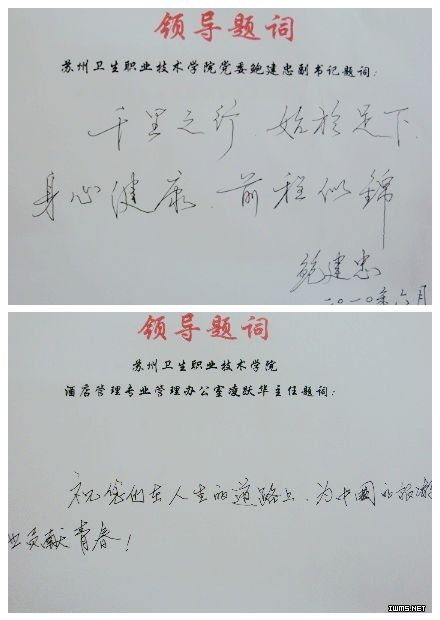 领导题词
苏州卫生职业技术学院党委鲍建忠副书记题词:
千里之行.始於足下.
身心健康.前程似錦
鲍建忠
二〇一〇年六月
领导题词
苏州卫生职业技术学院
酒店管理专业管理办公室凌跃华主任题词:
祝您们在人生的道路上、为中国
贡献青春!
IWMS.NET